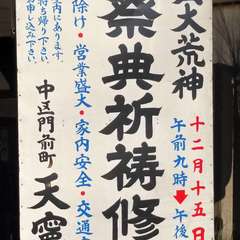 大荒神
十二月十五日
午前九時➡午後
祭典祈祷修
除け・営業盛大・家内安全・交通
中区門前町
天寧
市内にあります。
持ち帰り下さい。
お申し込み下さい。